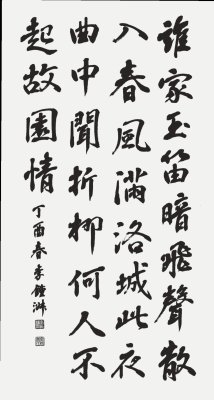 誰家玉笛暗飛聲散
入春風滿洛城此夜
曲中聞折柳何人不
起故園情
丁酉春李鐘